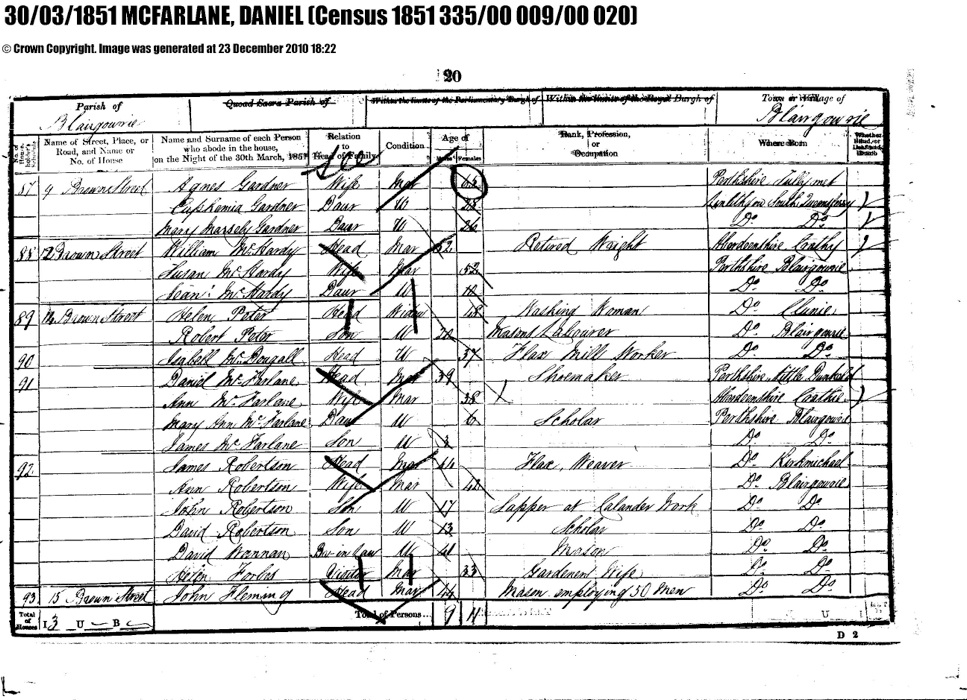 30/03/1851 MCFARLANE, DANIEL (Census 1851 335/00 009/00 020)
© Crown Copyright. Image was generated at 23 December 2010 18:22
20
Parish of Quoad Sacra Parish of Within the limits of the Parliamentary Burgh of Within the limits of the Royal Burgh of Town or Village of
Blairgowrie Blairgowrie
Name of Street, Place, or Road, and Name or No. of House Name and Surname of each Person who abode in the house, on the Night of the 30th March, 1851 Relation to Head of Family Condition Age of Males Females Rank, Profession, or Occupation Where Born
87 9 Brown Street Agnes Gardner Wife Mar Perthshire
Euphemia Gardner Daur U Linlithgow South Queensferry
Mary Gardner Daur U Do Do
88 12 Brown Street William McHardy Head Mar 62 Retired Wright Aberdeenshire
Susan McHardy Wife Mar 52 Perthshire Blairgowrie
Jean McHardy Daur U Do Do
89 Brown Street Helen Peter Head Widow Washing Woman Do Clunie
Robert Peter Son U 20 Masons Labourer Do Blairgowrie
90 Isabell McDougall Head U 37 Flax Mill Worker Do Do
91 Daniel McFarlane Head Mar 39 Shoemaker Perthshire Little Dunkeld
Ann McFarlane Wife Mar 38 Aberdeenshire
Mary Ann McFarlane Daur U 6 Scholar Perthshire Blairgowrie
James McFarlane Son U Do Do
92 James Robertson Head Mar 44 Flax Weaver Do Kirkmichael
Ann Robertson Wife Mar Do Blairgowrie
John Robertson Son U 17 Lapper at Calander Work Do Do
David Robertson Son U 13 Scholar Do Do
David Wannan Bro in law U 41 Mason Do Do
Helen Forbes Visitor Mar 33 Gardeners Wife Do Do
93 15 Brown Street John Fleming Head Mar Mason employing 50 Men Do Do
Total of Houses I 3 U B Total of Persons 9 11 U
D 2